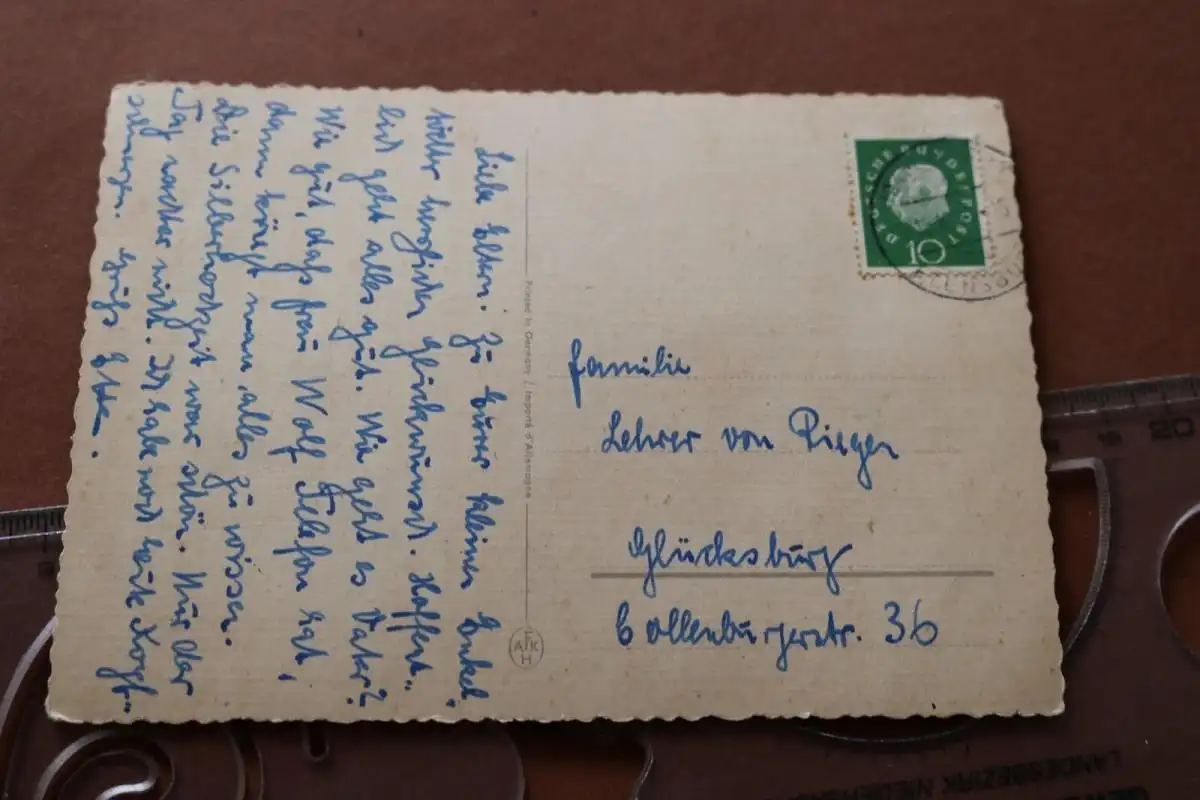 Liebe Eltern. Zu Eurer kleinen Enkel-
tochter herzlichen Glückwunsch. Hoffent-
lich geht alles gut. Wie geht es Vater?
Wie gut, daß Frau Wolf Telefon hat,
dann kriegt man alles zu wissen.
Die Silberhochzeit war schön. Nur der
Tag nachher nicht. Ich habe noch heute Kopf-
schmerzen. Grüße
Printed in Germany / Importé d'Allemagne
AKH
DEUTSCHE BUNDESPOST
10
Familie
Lehrer von Riegen
Glücksburg
Collenburgerstr. 36
20
LANDESBEZIRK